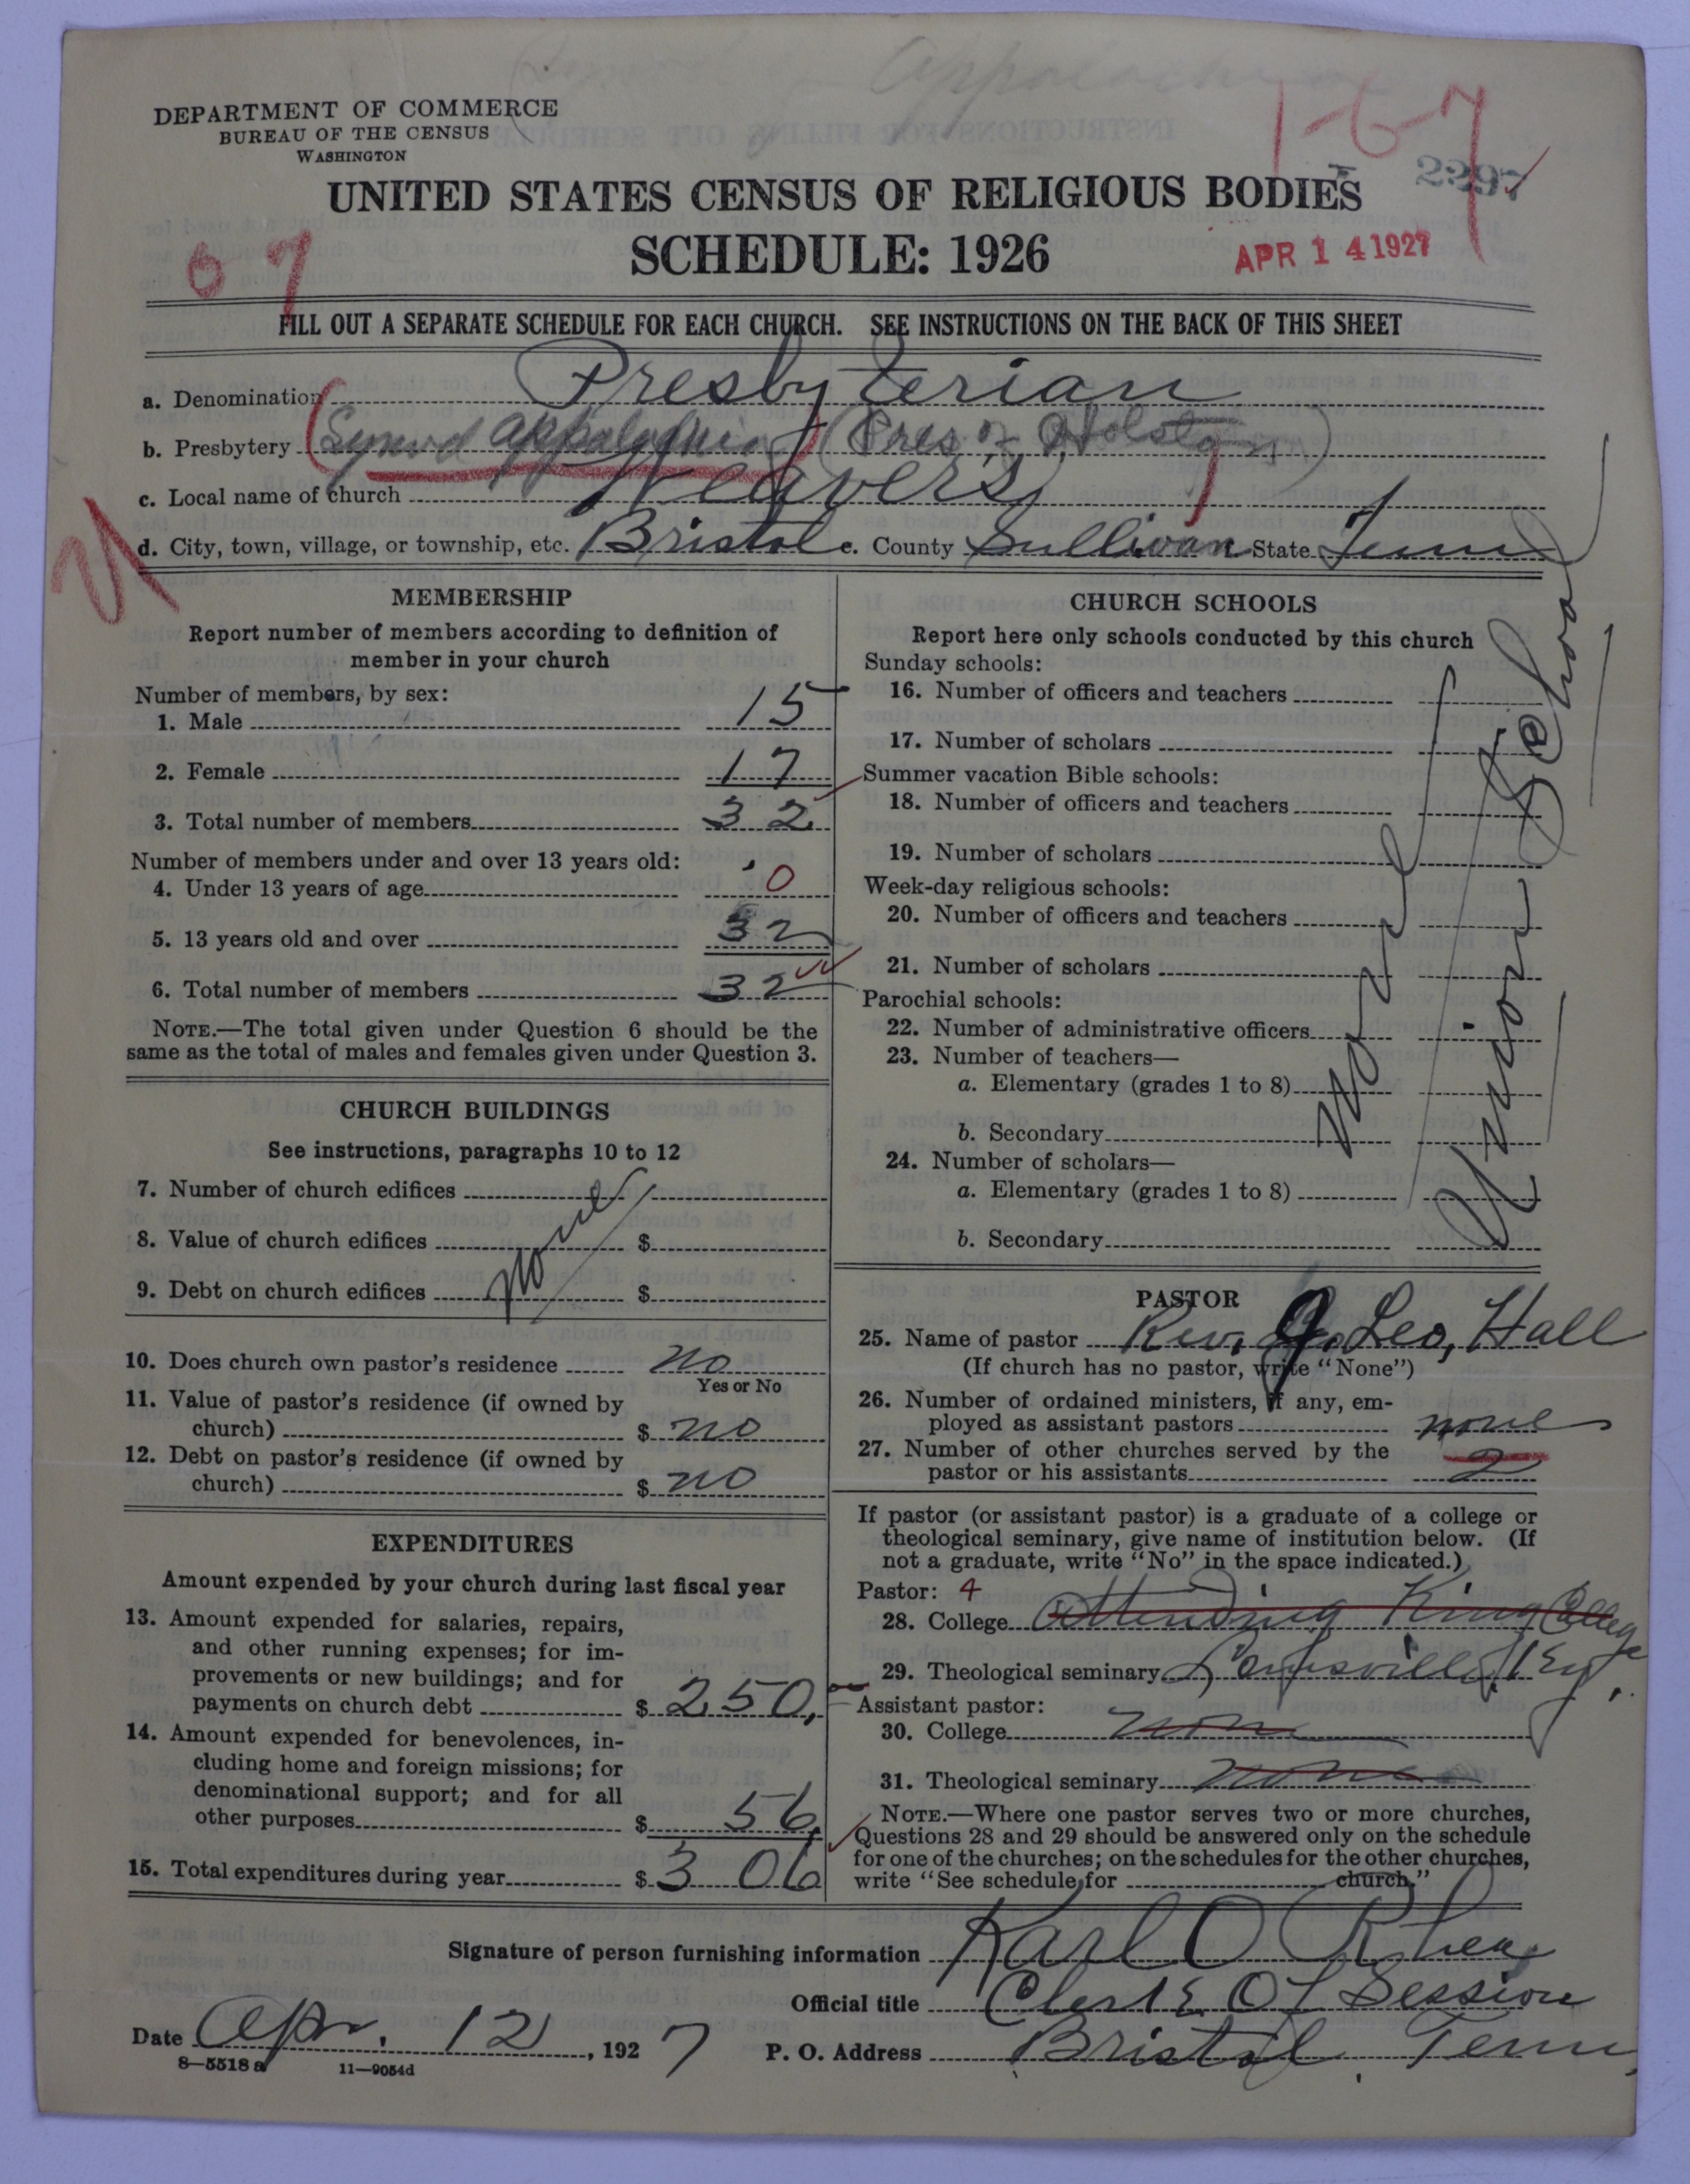 DEPARTMENT OF COMMERCE
BUREAU OF THE CENSUS
WASHINGTON
1-6-7
2297
UNITED STATES CENSUS OF RELIGIOUS BODIES
SCHEDULE: 1926
APR 14 1927
67
FILL OUT A SEPARATE SCHEDULE FOR EACH CHURCH. SEE INSTRUCTIONS ON THE BACK OF THIS SHEET
a. Denomination Presbyterian
b. Presbytery (Synod Appalachia) (Pres. of Holston)
c. Local name of church Weavers
d. City, town, village, or township, etc. Bristol e. County Sullivan State Tenn
MEMBERSHIP
Report number of members according to definition of
member in your church
Number of members, by sex:
1. Male 15
2. Female 17
3. Total number of members 32
Number of members under and over 13 years old:
4. Under 13 years of age 0
5. 13 years old and over 32
6. Total number of members 32
NOTE.—The total given under Question 6 should be the
same as the total of males and females given under Question 3.
CHURCH BUILDINGS
See instructions, paragraphs 10 to 12
7. Number of church edifices
8. Value of church edifices $
9. Debt on church edifices $
None
10. Does church own pastor's residence no
Yes or No
11. Value of pastor's residence (if owned by
church) $ no
12. Debt on pastor's residence (if owned by
church) $ no
EXPENDITURES
Amount expended by your church during last fiscal year
13. Amount expended for salaries, repairs,
and other running expenses; for im-
provements or new buildings; and for
payments on church debt $ 250,
14. Amount expended for benevolences, in-
cluding home and foreign missions; for
denominational support; and for all
other purposes $ 56,
15. Total expenditures during year $ 306
CHURCH SCHOOLS
Report here only schools conducted by this church
Sunday schools:
16. Number of officers and teachers
17. Number of scholars
Summer vacation Bible schools:
18. Number of officers and teachers
19. Number of scholars
Week-day religious schools:
20. Number of officers and teachers
21. Number of scholars
Parochial schools:
22. Number of administrative officers
23. Number of teachers—
a. Elementary (grades 1 to 8)
b. Secondary
24. Number of scholars—
a. Elementary (grades 1 to 8)
b. Secondary
None
Union School
PASTOR
25. Name of pastor Rev. J. Leo, Hall
(If church has no pastor, write "None")
26. Number of ordained ministers, if any, em-
ployed as assistant pastors none
27. Number of other churches served by the
pastor or his assistants 2
If pastor (or assistant pastor) is a graduate of a college or
theological seminary, give name of institution below. (If
not a graduate, write "No" in the space indicated.)
Pastor: 4
28. College Attending King College
29. Theological seminary Louisville, Ky.
Assistant pastor:
30. College none
31. Theological seminary none
NOTE.—Where one pastor serves two or more churches,
Questions 28 and 29 should be answered only on the schedule
for one of the churches; on the schedules for the other churches,
write "See schedule for church."
Signature of person furnishing information Karl O Rhea
Official title Clerk Of Session
Date Apr. 12, 1927 P. O. Address Bristol Tenn
8—5518 a 11—9054d